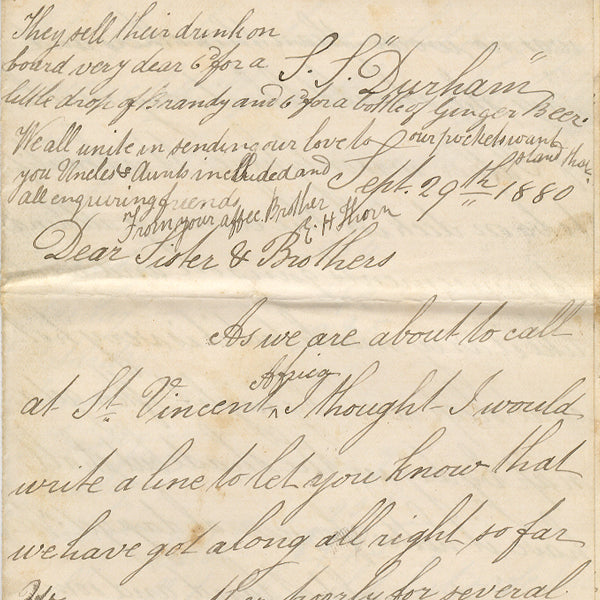 They sell their drink on
board very dear 6d for a
little drop of Brandy and 6d for a bottle of Ginger Beer.
our pockets wont
stand that.
We all unite in sending our love to
you Uncles & Aunts included and
all enquiring friends
From your affec. Brother
E. H Thorn
S. S. "Durham"
Sept. 29th 1880
Dear Sister & Brothers
As we are about to call
at St. Vincent ^ Africa I thought I would
write a line to let you know that
we have got along all right so far
poorly for several